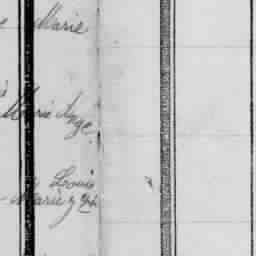 Marie
Marie Ange
Louis
Marie